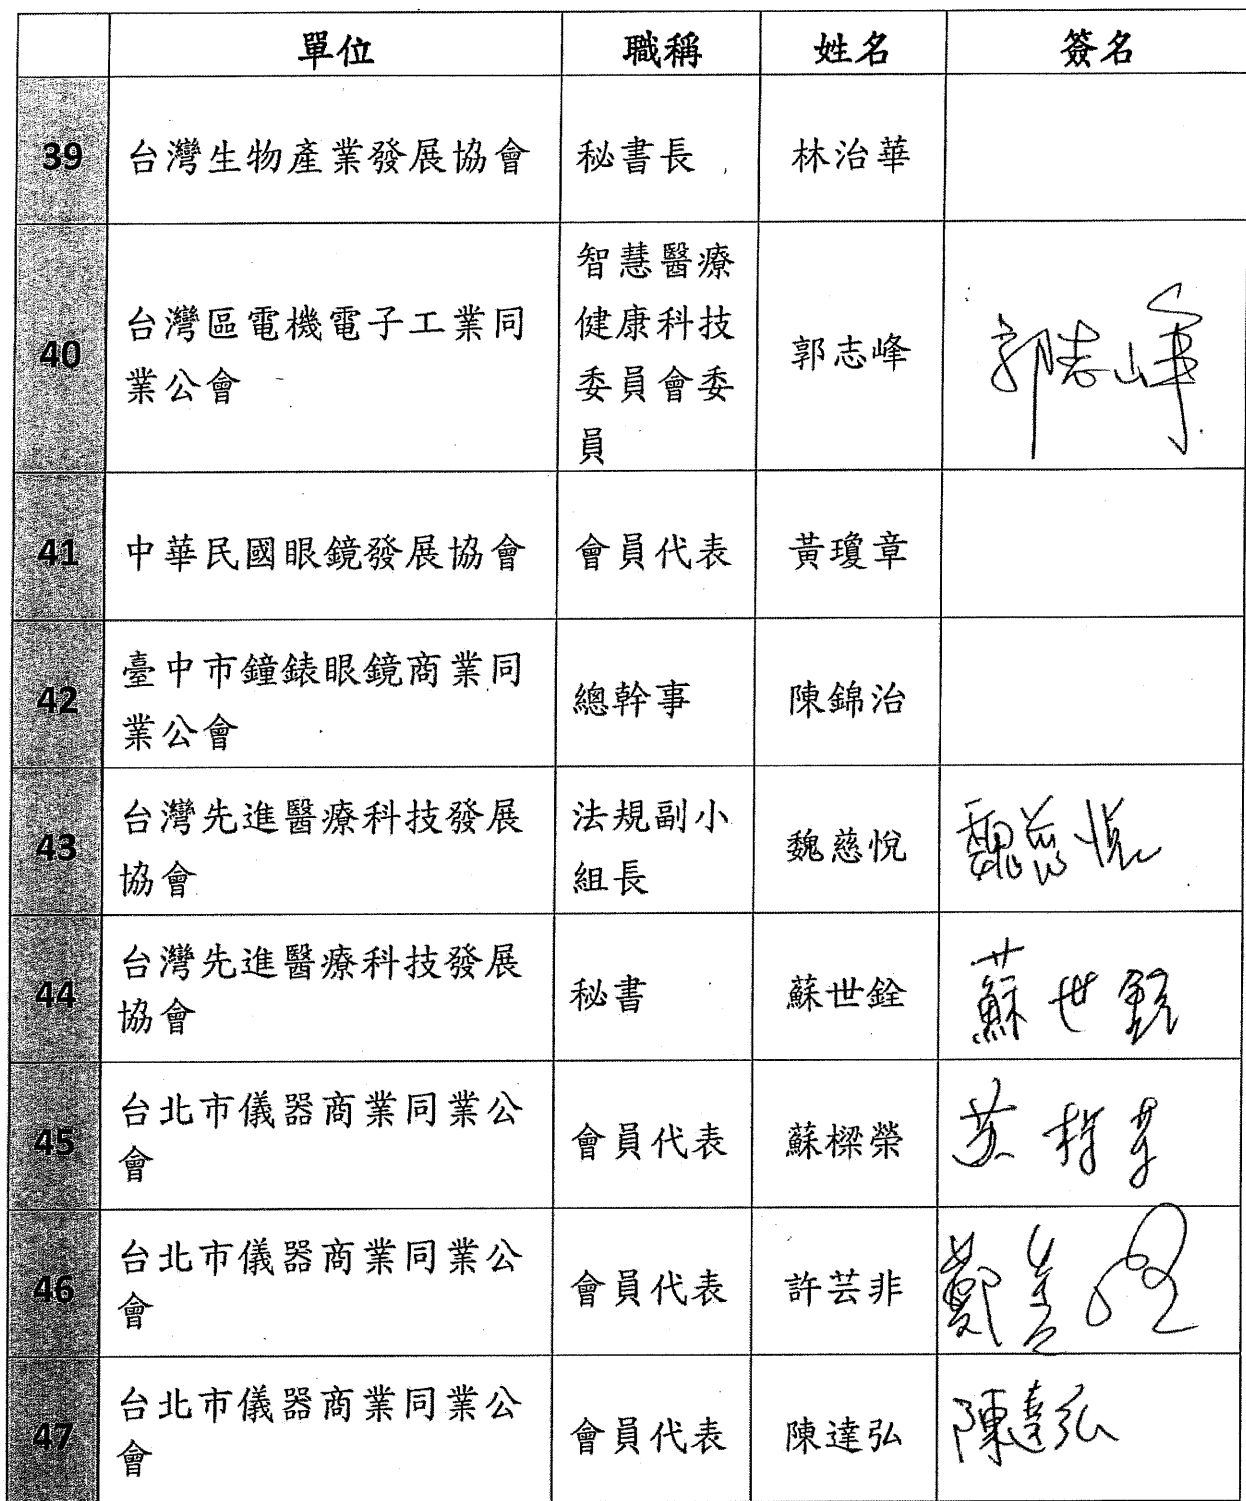 單位 職稱 姓名 簽名
39 台灣生物產業發展協會 秘書長 林治華
40 台灣區電機電子工業同
業公會
智慧醫療
健康科技
委員會委
員
郭志峰 郭志峰
41 中華民國眼鏡發展協會 會員代表 黃瓊章
42 臺中市鐘錶眼鏡商業同
業公會
總幹事 陳錦治
43 台灣先進醫療科技發展
協會
法規副小
組長
魏慈悅 魏慈悅
44 台灣先進醫療科技發展
協會
秘書 蘇世銓 蘇世銓
45 台北市儀器商業同業公
會
會員代表 蘇樑榮
46 台北市儀器商業同業公
會
會員代表 許芸非
47 台北市儀器商業同業公
會
會員代表 陳達弘 陳達弘